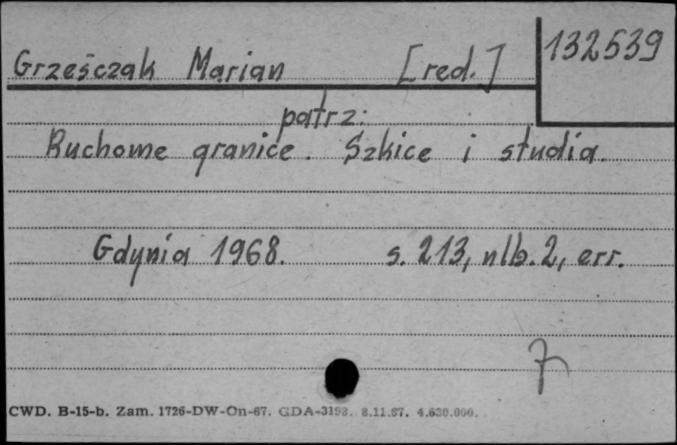 132539
Grześczak Marian [red.]
patrz:
Ruchome granice. Szkice i studia.
Gdynia 1968. s. 213, nlb. 2, err.
7
CWD. B-15-b. Zam. 1726-DW-On-67. GDA-3198. 8.11.67. 4.630.000.